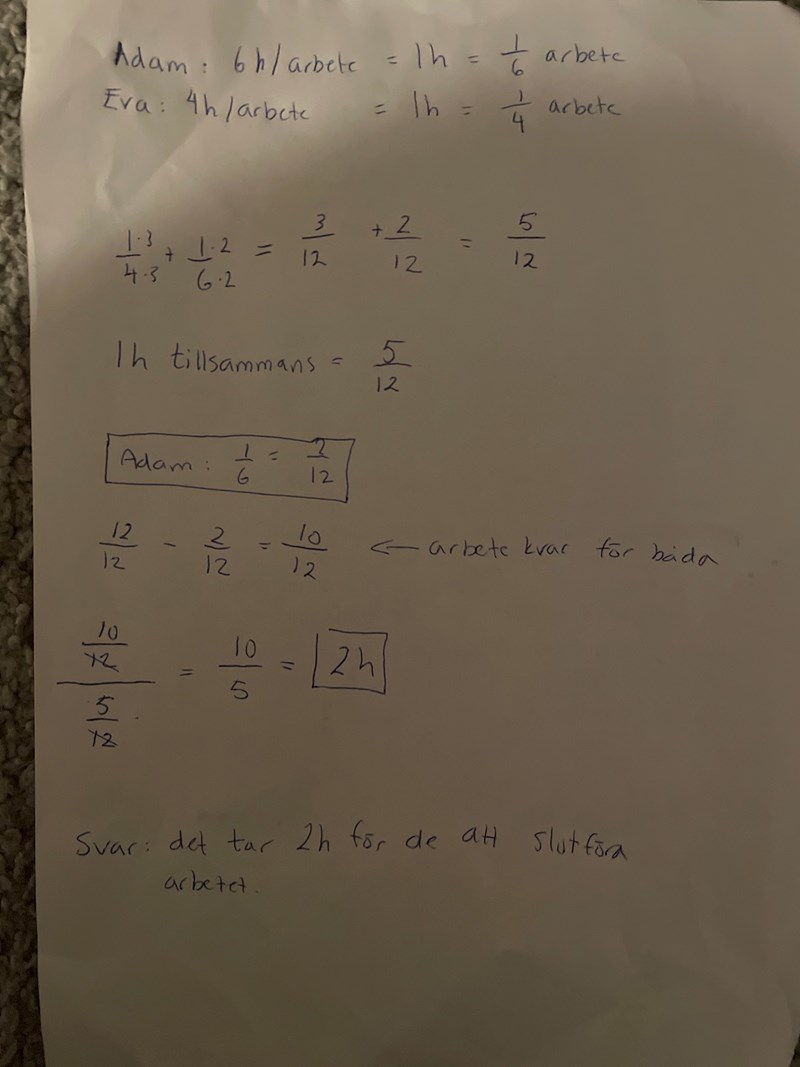 Adam: 6h/arbete = 1h = 1/6 arbete
Eva: 4h/arbete = 1h = 1/4 arbete
1·3/4·3 + 1·2/6·2 = 3/12 + 2/12 = 5/12
1h tillsammans = 5/12
Adam: 1/6 = 2/12
12/12 - 2/12 = 10/12 ← arbete kvar för båda
10/12 / 5/12 = 10/5 = 2h
Svar: det tar 2h för de att slutföra
arbetet.